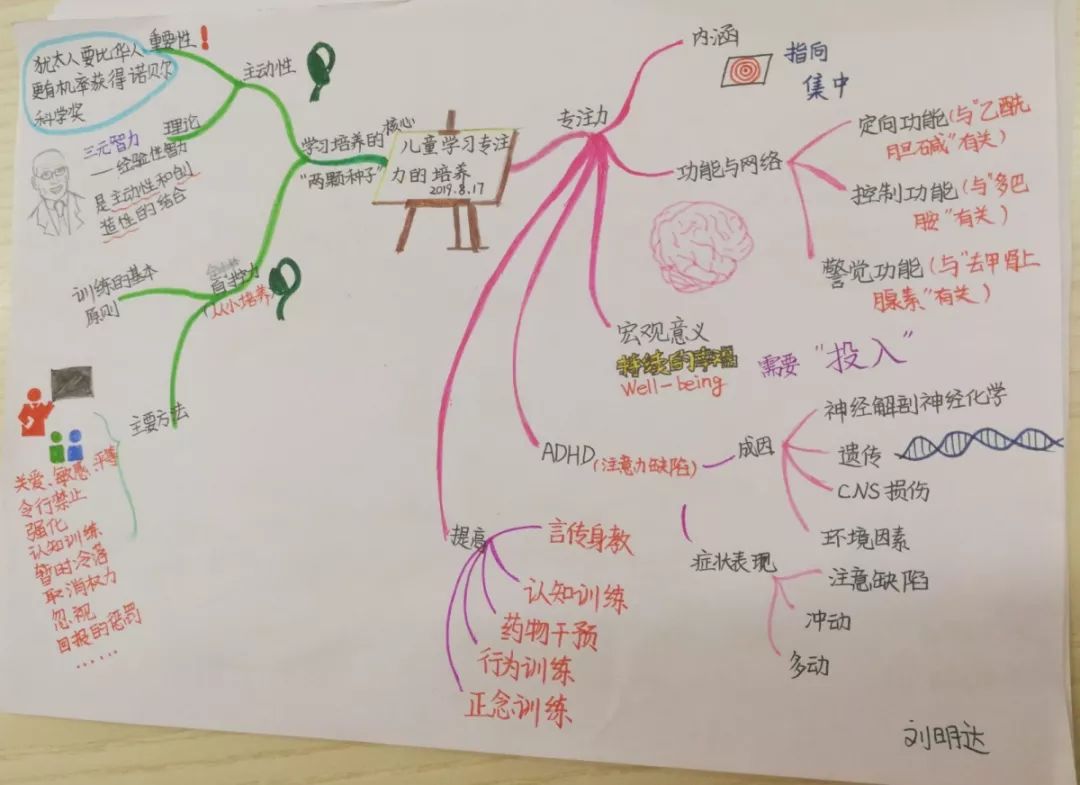 儿童学习专注
力的培养
2019.8.17
核心
学习培养的
"两颗种子"
主动性
重要性
犹太人要比华人
更有机率获得诺贝尔
科学奖
理论
三元智力
——经验性智力
是主动性和创
造性的结合
(从小培养)
训练的基本
原则
主要方法
关爱、敏感、平等
令行禁止
强化
认知训练
暂时冷落
取消权力
忽视
回报的惩罚
......
专注力
内涵
指向
集中
功能与网络
定向功能(与"乙酰
胆石碱"有关)
控制功能(与"多巴
胺"有关)
警觉功能(与"去甲肾上
腺素"有关)
宏观意义
持续的幸福
Well-being
需要"投入"
ADHD(注意力缺陷)
成因
神经解剖神经化学
遗传
CNS损伤
环境因素
症状表现
注意缺陷
冲动
多动
提高
言传身教
认知训练
药物干预
行为训练
正念训练
刘明达